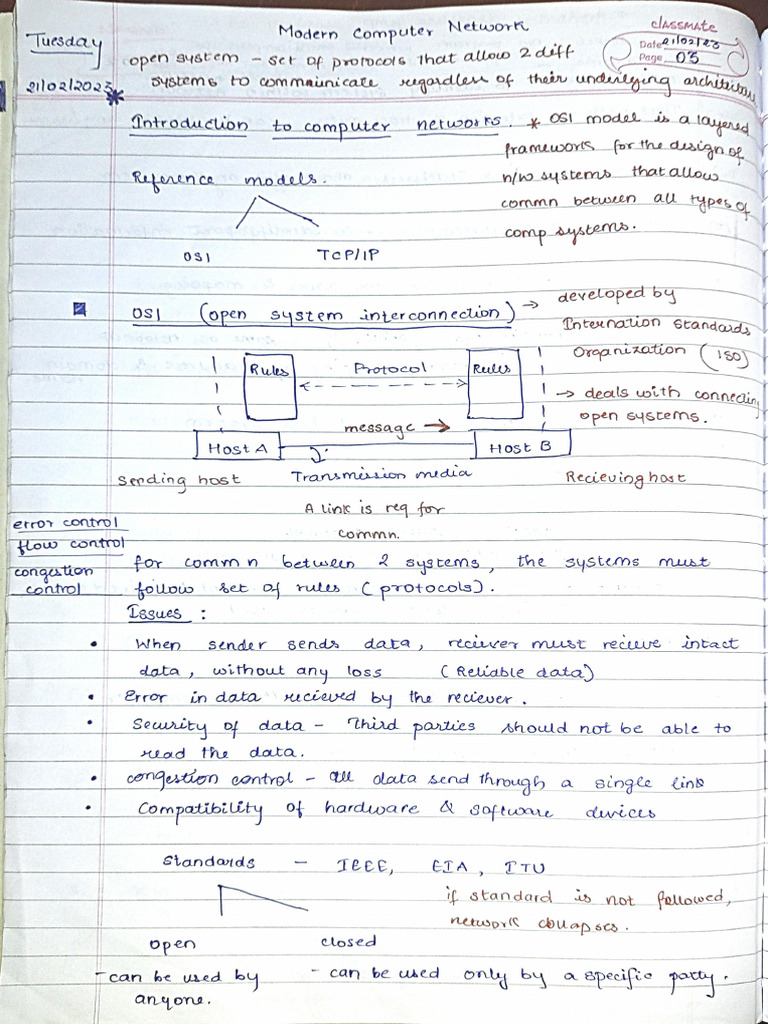 Modern Computer Network
classmate
Date 21/02/23
Page 03
Tuesday
21/02/2023
open system - set of protocols that allow 2 diff
systems to communicate regardless of their underlying
* Introduction to computer networks.
* OSI model is a layered
framework for the design of
n/w systems that allow
commn between all types of
comp systems.
Reference models.
OSI TCP/IP
OSI (open system interconnection) → developed by
Internation standards
Organization (ISO)
→ deals with connecting
open systems.
Rules Protocol Rules
message →
Host A Host B
Sending host Transmission media Recieving host
A link is req for
commn.
error control
flow control
congestion
control
for commn between 2 systems, the systems must
follow set of rules (protocols).
Issues :
• When sender sends data, reciever must recieve intact
data, without any loss (Reliable data)
• Error in data recieved by the reciever.
• Security of data - Third parties should not be able to
read the data.
• congestion control - all data send through a single link
• Compatibility of hardware & software devices
Standards - IEEE, EIA, ITU
if standard is not followed,
network collapses.
open closed
- can be used by
anyone.
- can be used only by a specific party.